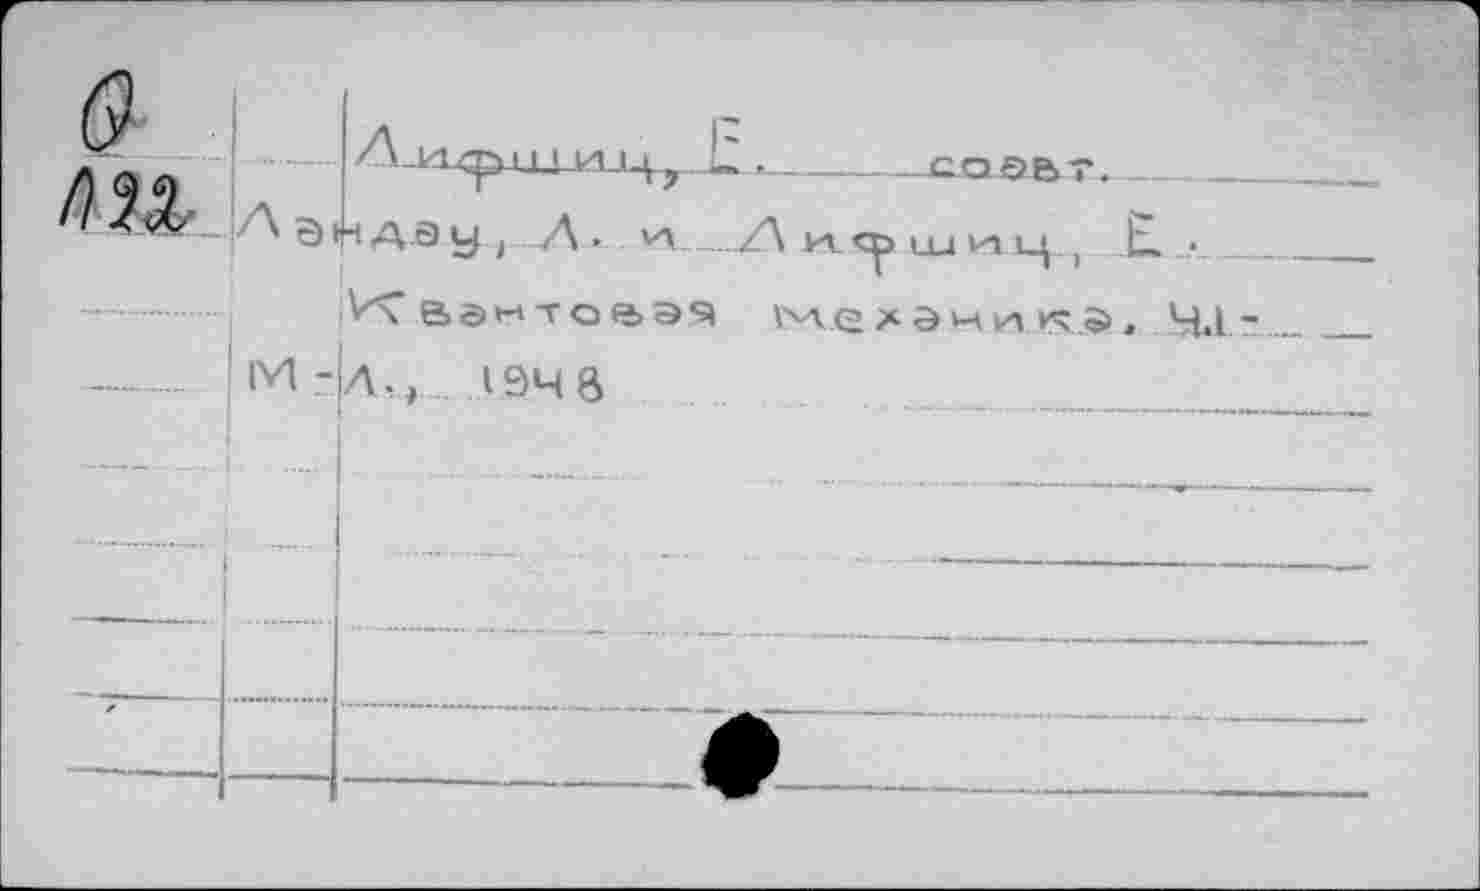 Лифшиц, Е. соавт.
Ландау, Л. и Лифшиц, Е.
Квантовая механика. Ч.1-
М-Л., 1948